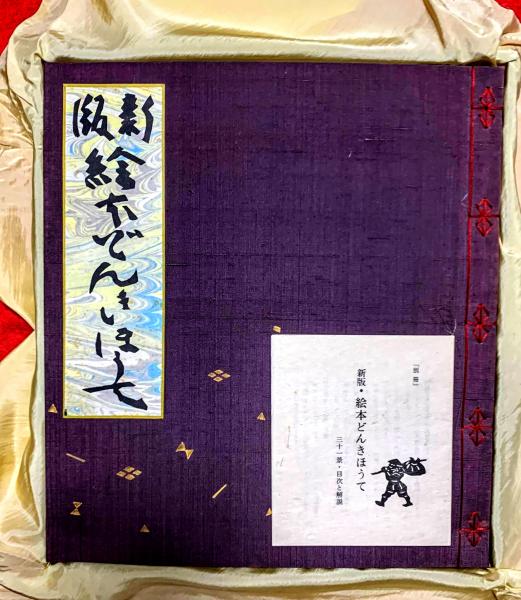 新版
絵本どんきほうて
「別冊」
新版・絵本どんきほうて
三十一景・目次と解説